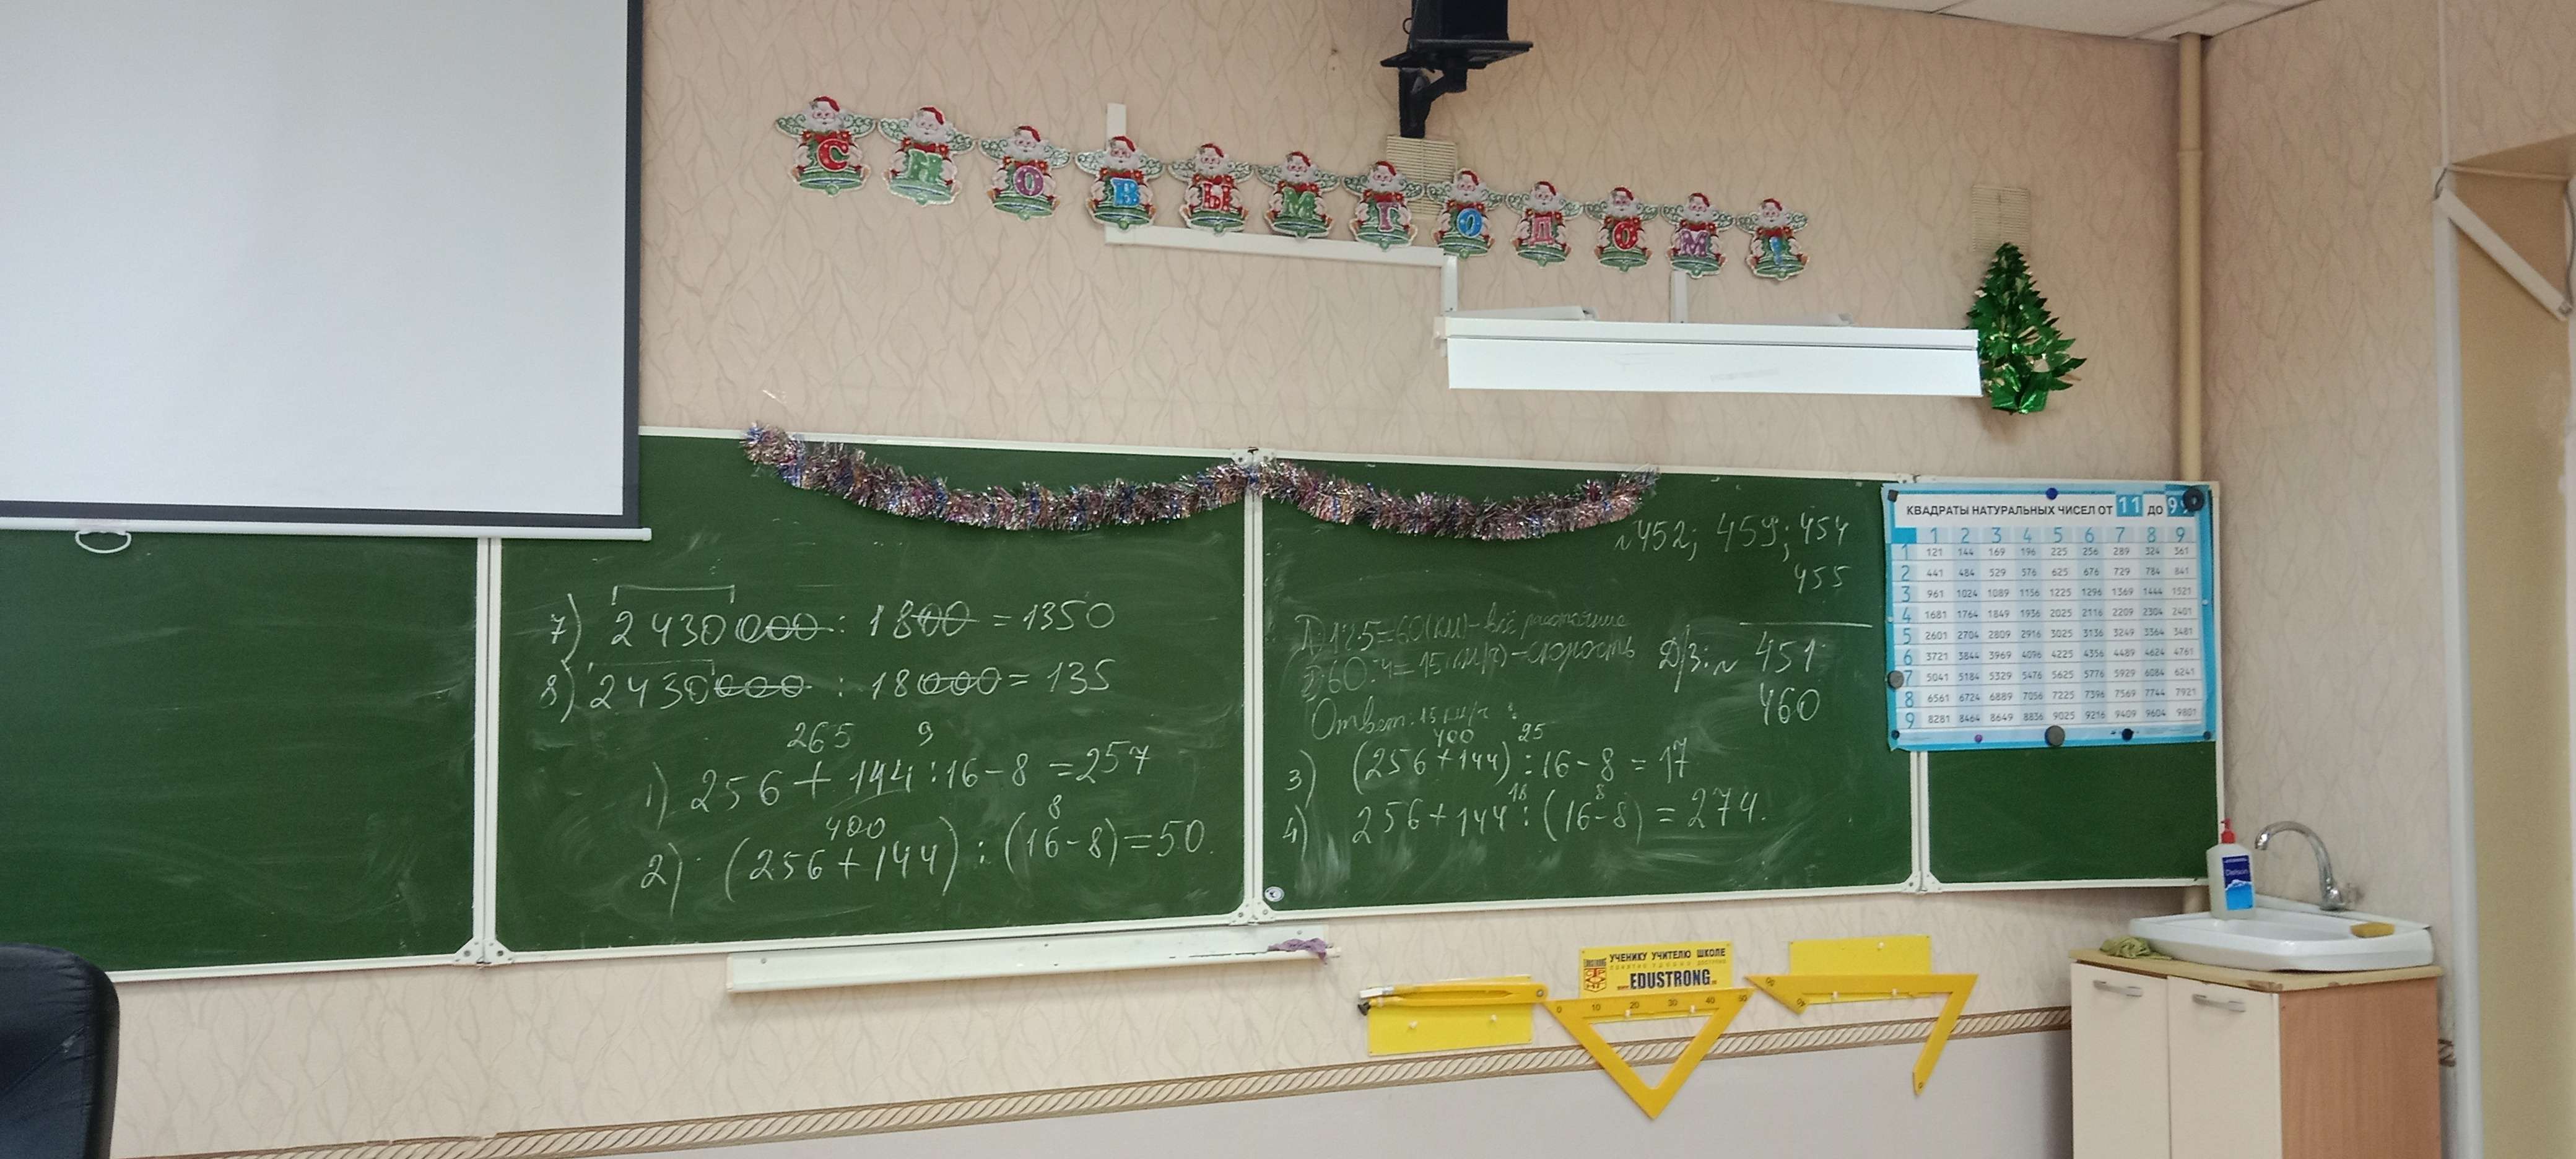 С НОВЫМ ГОДОМ!
7) 2430000 : 1800 = 1350
8) 2430000 : 18000 = 135
265 9
1) 256 + 144 : 16 - 8 = 257
400 8
2) (256 + 144) : (16 - 8) = 50.
№452; 459; 454
455
1) 12·5=60(км) - всё расстояние
2) 60:4=15(км/ч) - скорость
Ответ: 15 км/ч
Д/З: № 451
460
400 25
3) (256 + 144) : 16 - 8 = 17
18 8
4) 256 + 144 : (16 - 8) = 274.
КВАДРАТЫ НАТУРАЛЬНЫХ ЧИСЕЛ ОТ 11 ДО 99
1 2 3 4 5 6 7 8 9
1 121 144 169 196 225 256 289 324 361
2 441 484 529 576 625 676 729 784 841
3 961 1024 1089 1156 1225 1296 1369 1444 1521
4 1681 1764 1849 1936 2025 2116 2209 2304 2401
5 2601 2704 2809 2916 3025 3136 3249 3364 3481
6 3721 3844 3969 4096 4225 4356 4489 4624 4761
7 5041 5184 5329 5476 5625 5776 5929 6084 6241
8 6561 6724 6889 7056 7225 7396 7569 7744 7921
9 8281 8464 8649 8836 9025 9216 9409 9604 9801
УЧЕНИКУ УЧИТЕЛЮ ШКОЛЕ
EDUSTRONG
0 10 20 30 40 50